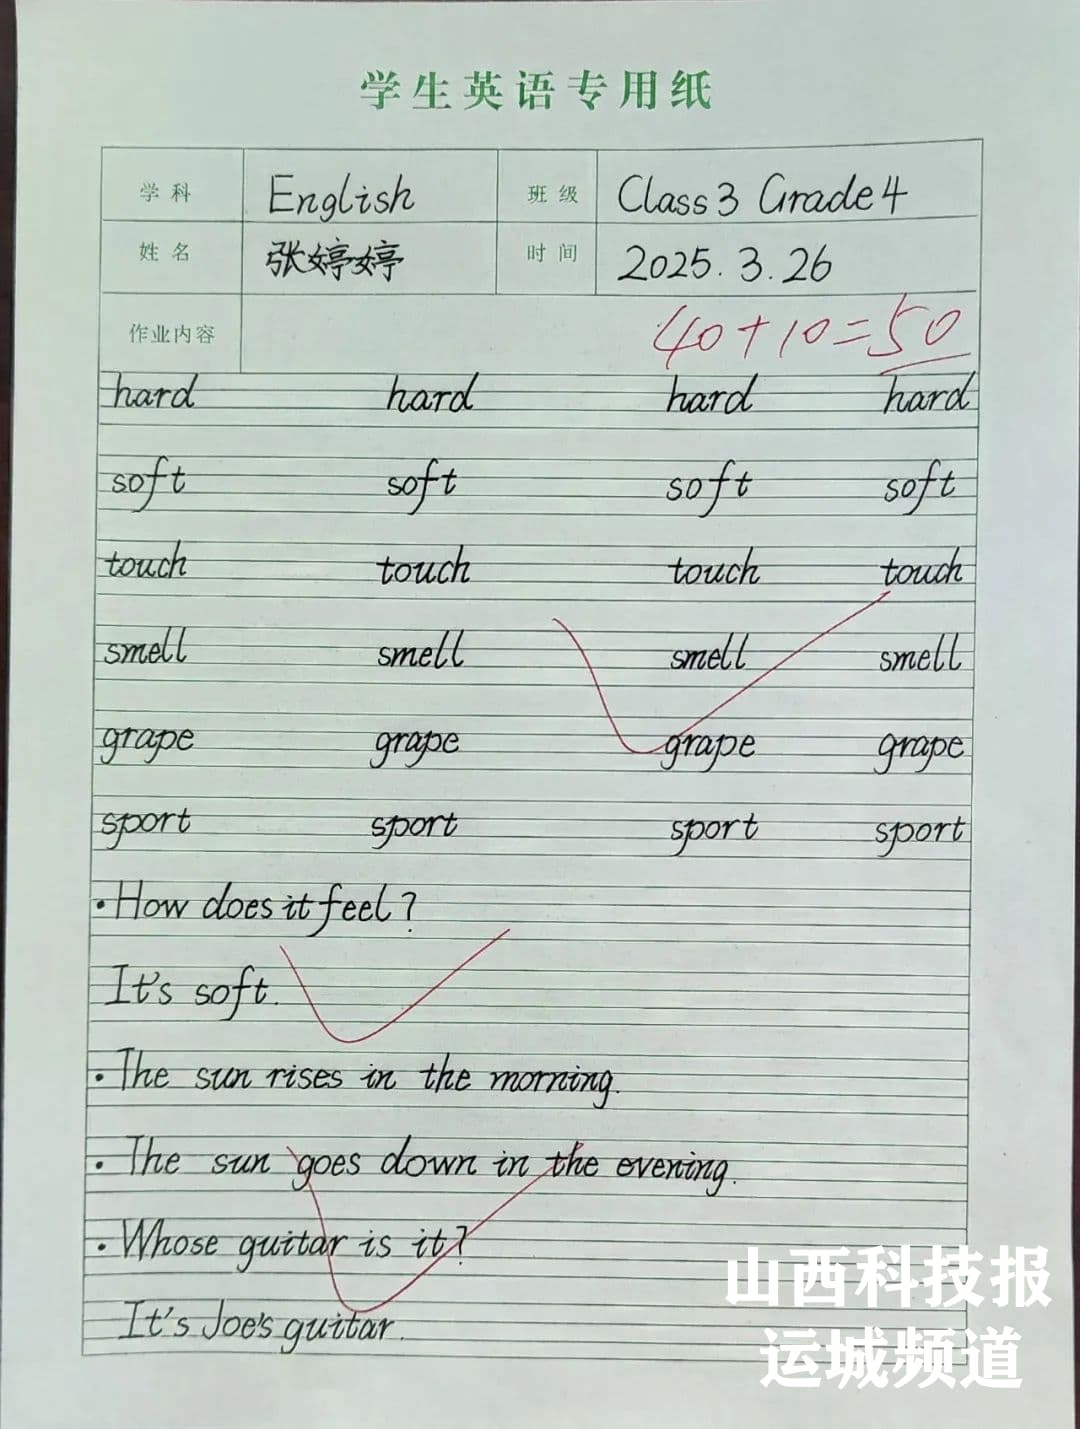 学生英语专用纸
学科 English 班级 Class 3 Grade 4
姓名 张婷婷 时间 2025.3.26
作业内容 40+10=50
hard hard hard hard
soft soft soft soft
touch touch touch touch
smell smell smell smell
grape grape grape grape
sport sport sport sport
·How does it feel?
It's soft.
·The sun rises in the morning.
·The sun goes down in the evening.
·Whose guitar is it?
It's Joe's guitar.
山西科技报
运城频道